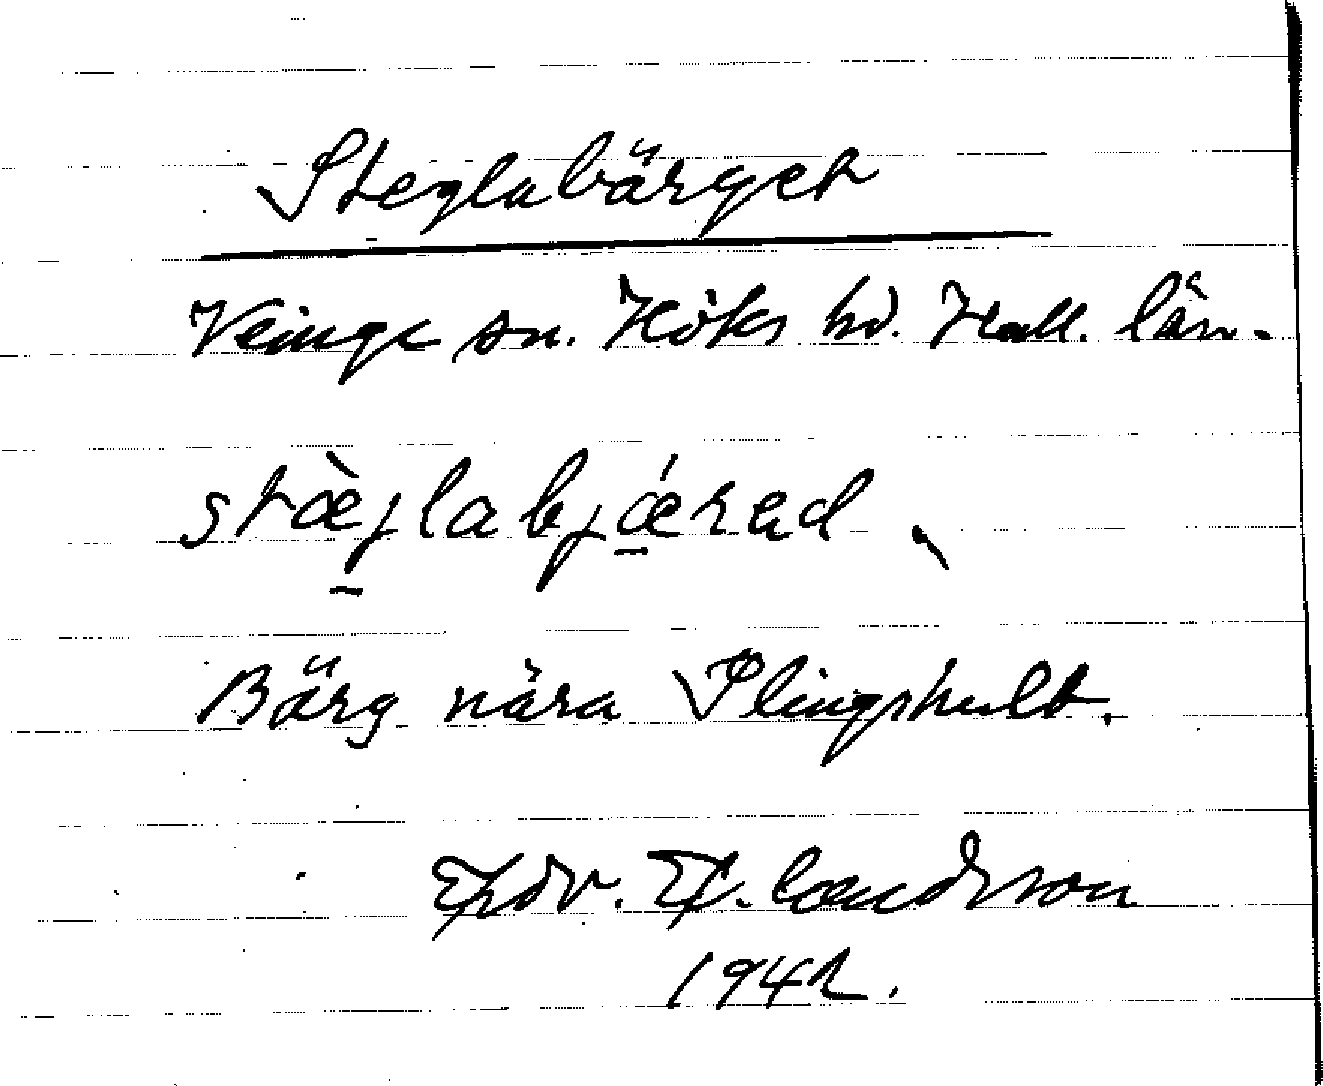 Steglabärget
Veinge sn. Höks hd. Hall. län.
stæ̀jlabjǽrad
Bärg nära Plingshult.
1942.